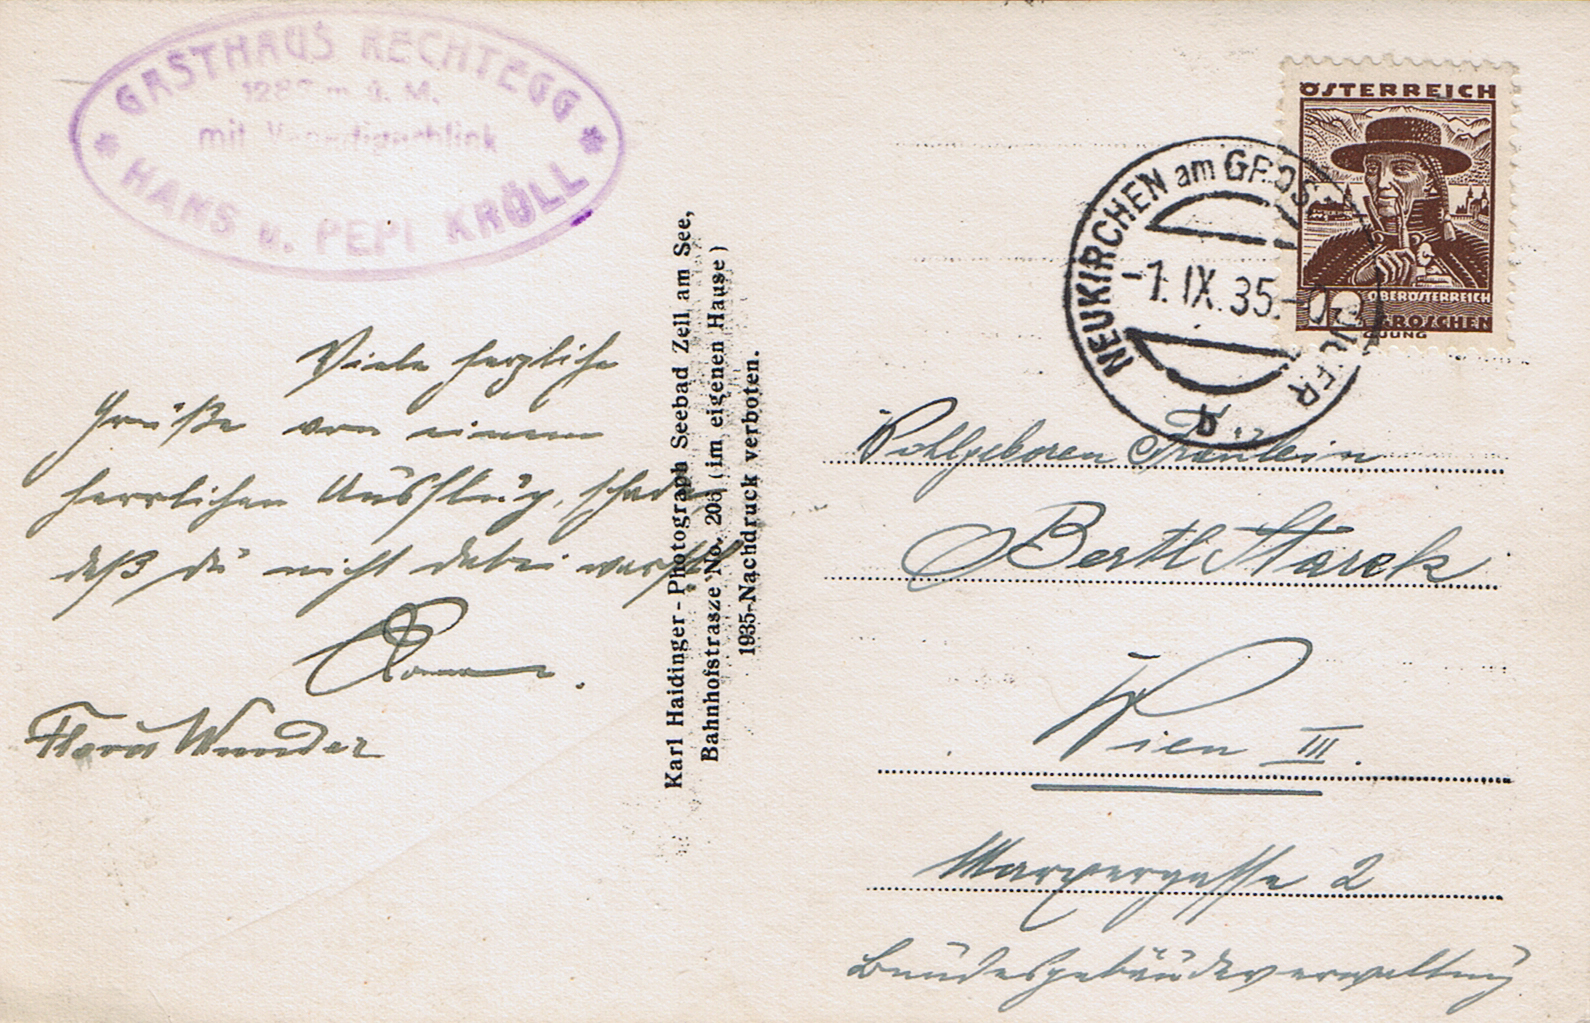 GASTHAUS RECHTEGG
128 m ü. M.
mit Venedigerblick
HANS u. PEPI KRÖLL
Viele herzliche
Grüße von einem
herrlichen Ausflug, schade
daß du nicht dabei warst
Flora Wunder
Karl Haidinger-Photograph Seebad Zell am See,
Bahnhofstrasze No. 205 (im eigenen Hause)
1935-Nachdruck verboten.
ÖSTERREICH
OBERÖSTERREICH
12 GROSCHEN
G.JUNG
NEUKIRCHEN am GROS
-1. IX. 35.
b
Wohlgeboren Fräulein
Bertl Starek
Wien III.
Marxergasse 2
Bundesgebäudeverwaltung